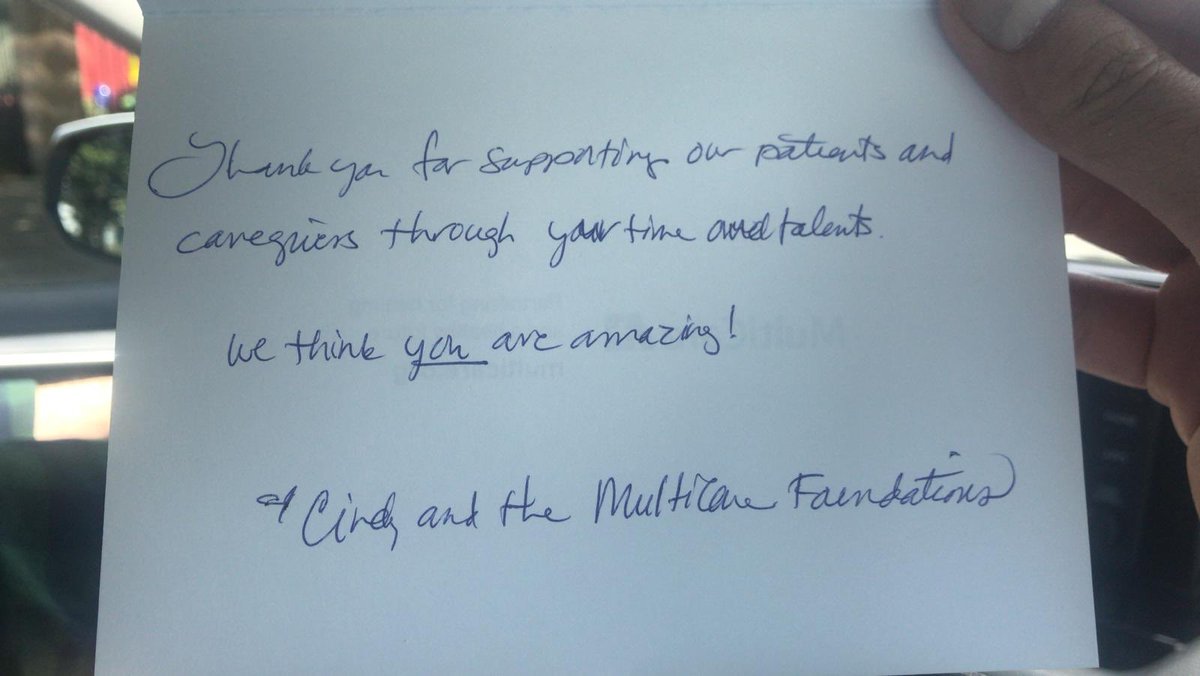 Thank you for supporting our patients and
caregivers through your time and talents.
We think you are amazing!
Cindy and the MultiCare Foundations